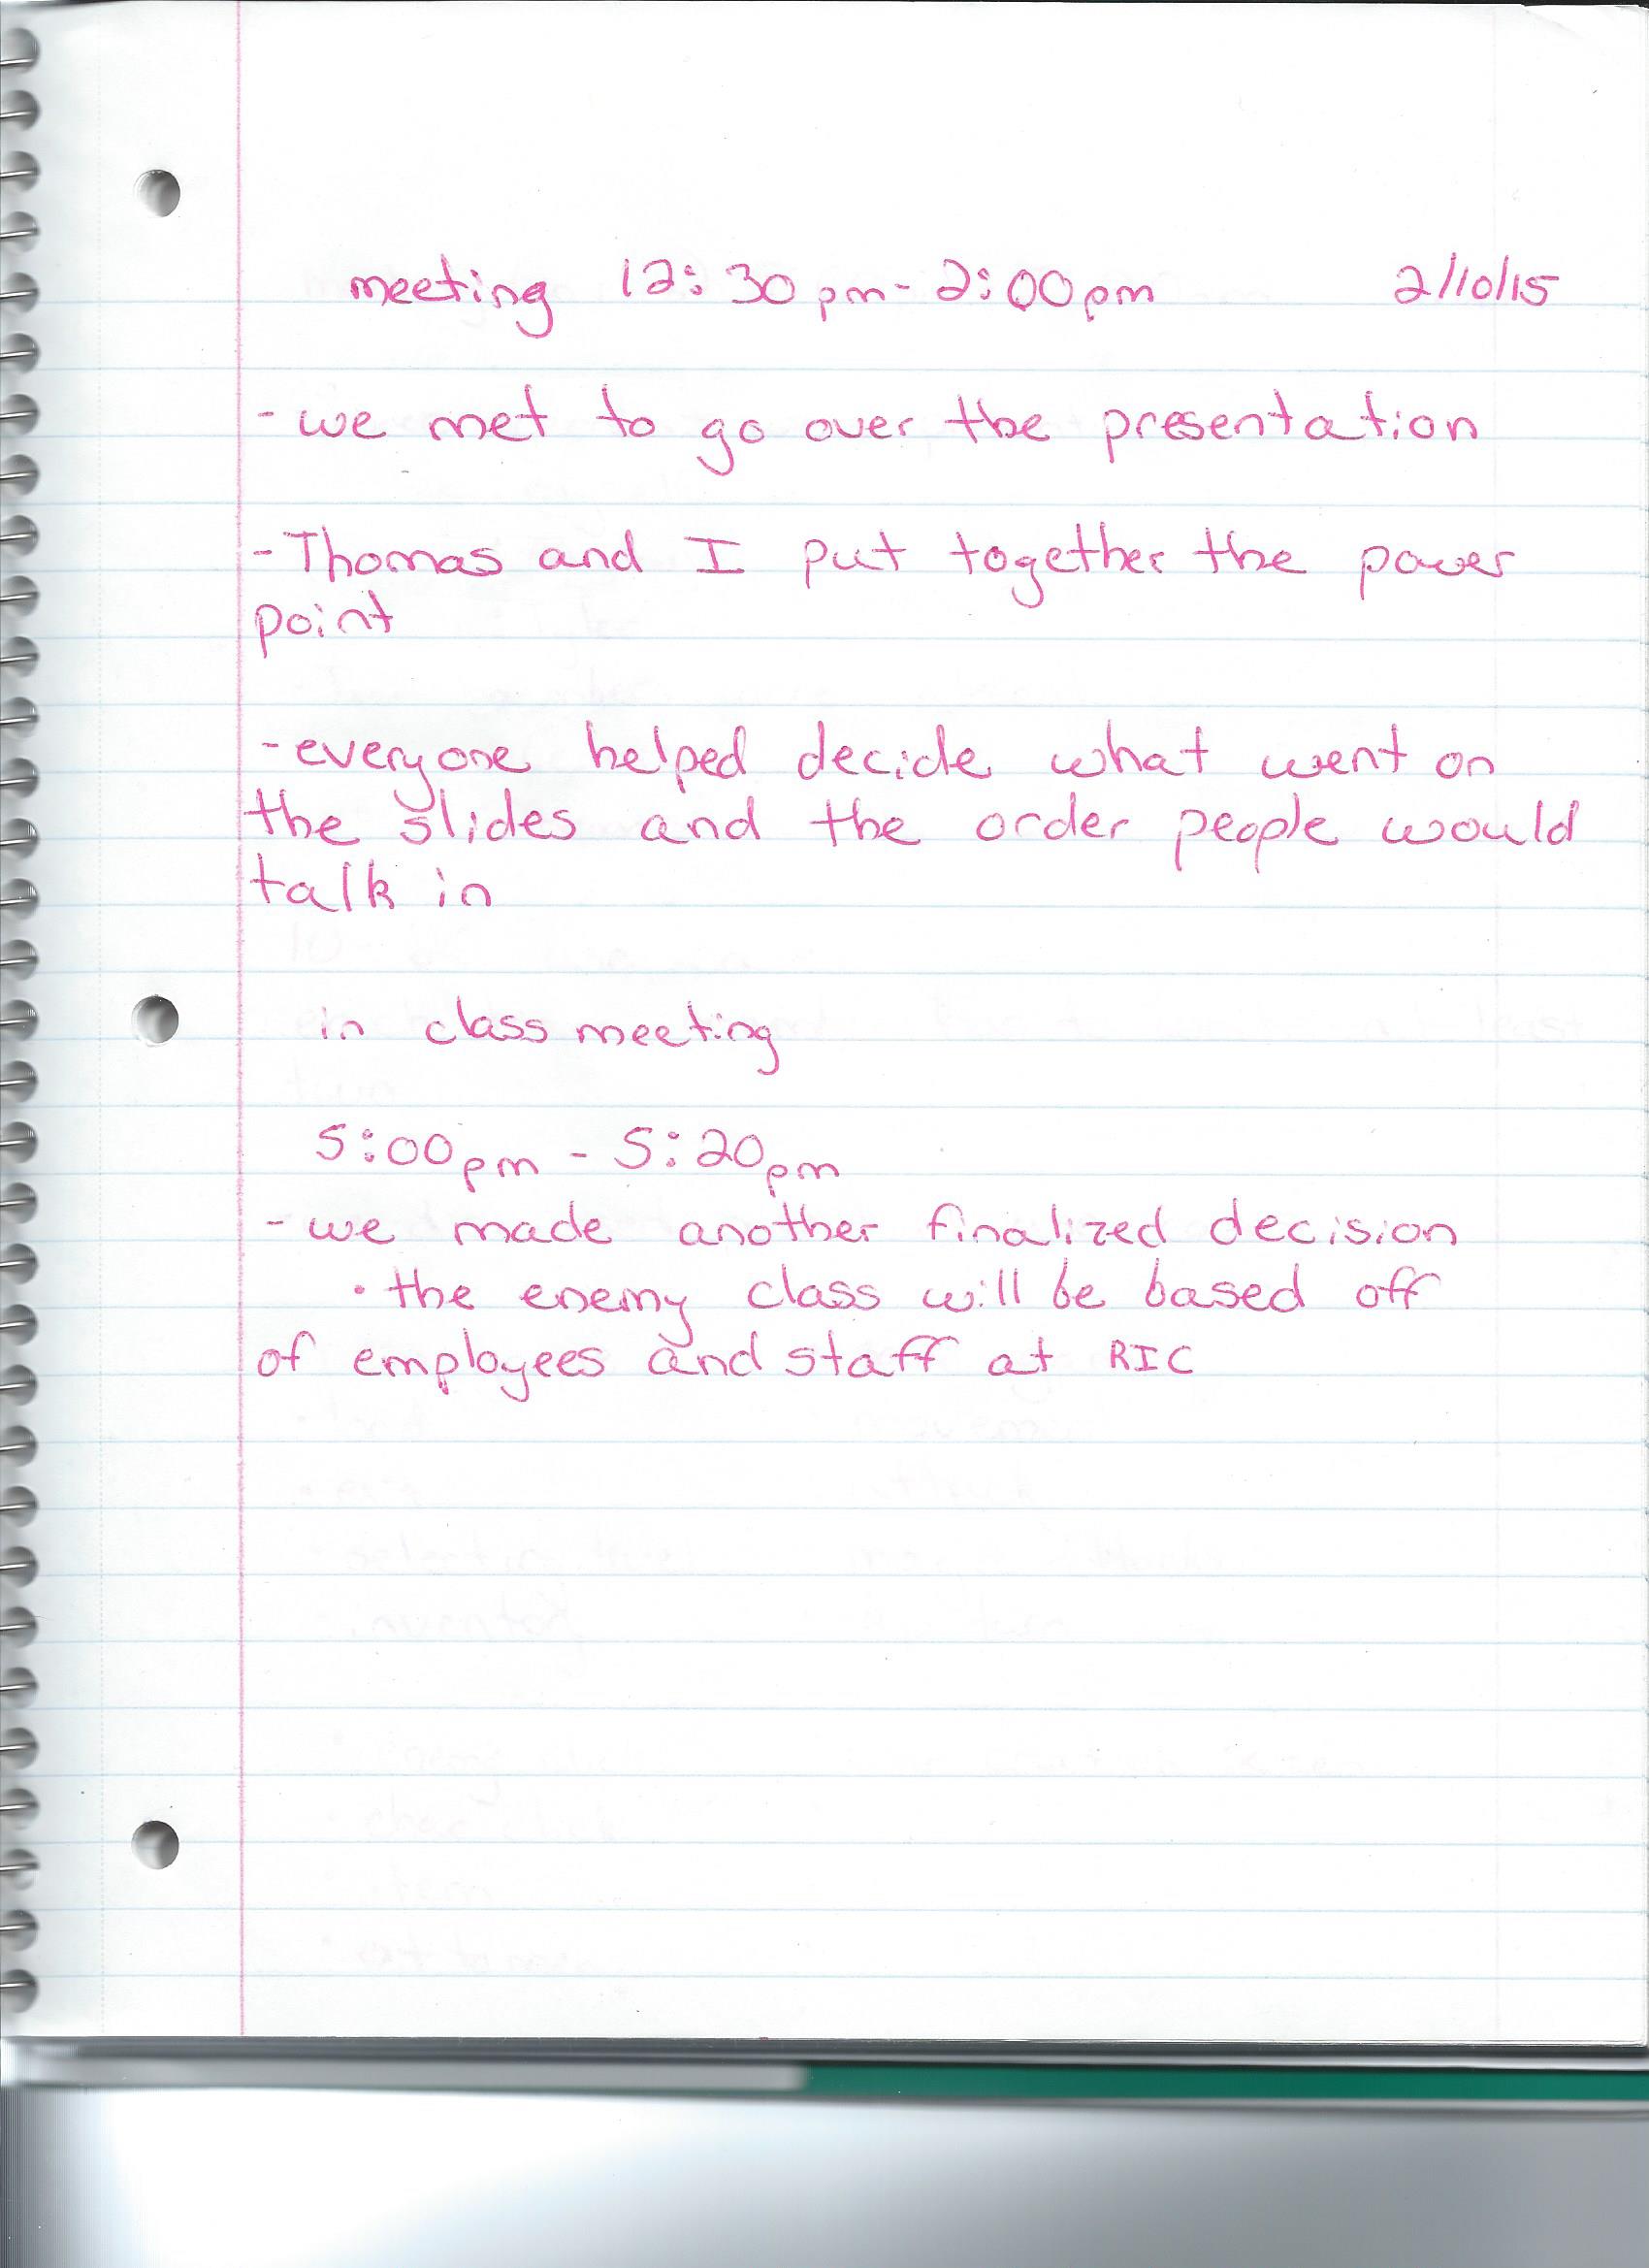 meeting 12:30pm-2:00pm 2/10/15
- we met to go over the presentation
- Thomas and I put together the power
point
- everyone helped decide what went on
the slides and the order people would
talk in
in class meeting
5:00pm - 5:20pm
- we made another finalized decision
• the enemy class will be based off
of employees and staff at RIC